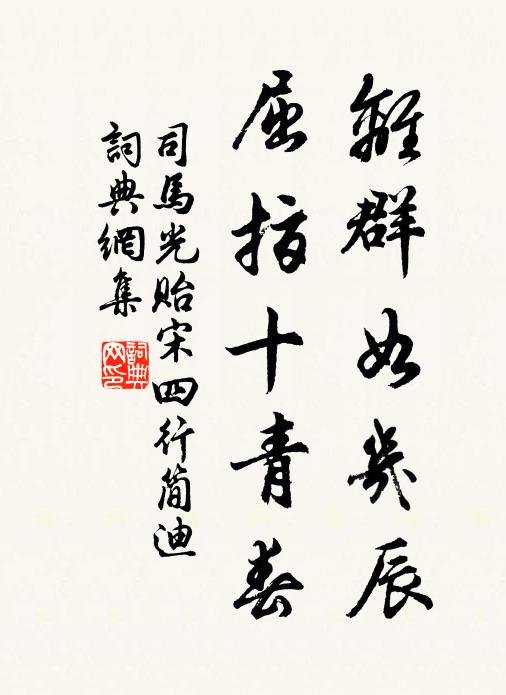 離群如幾辰
屈指十青春
司馬光貽宋四行简迪
詞典網集
詞典网印